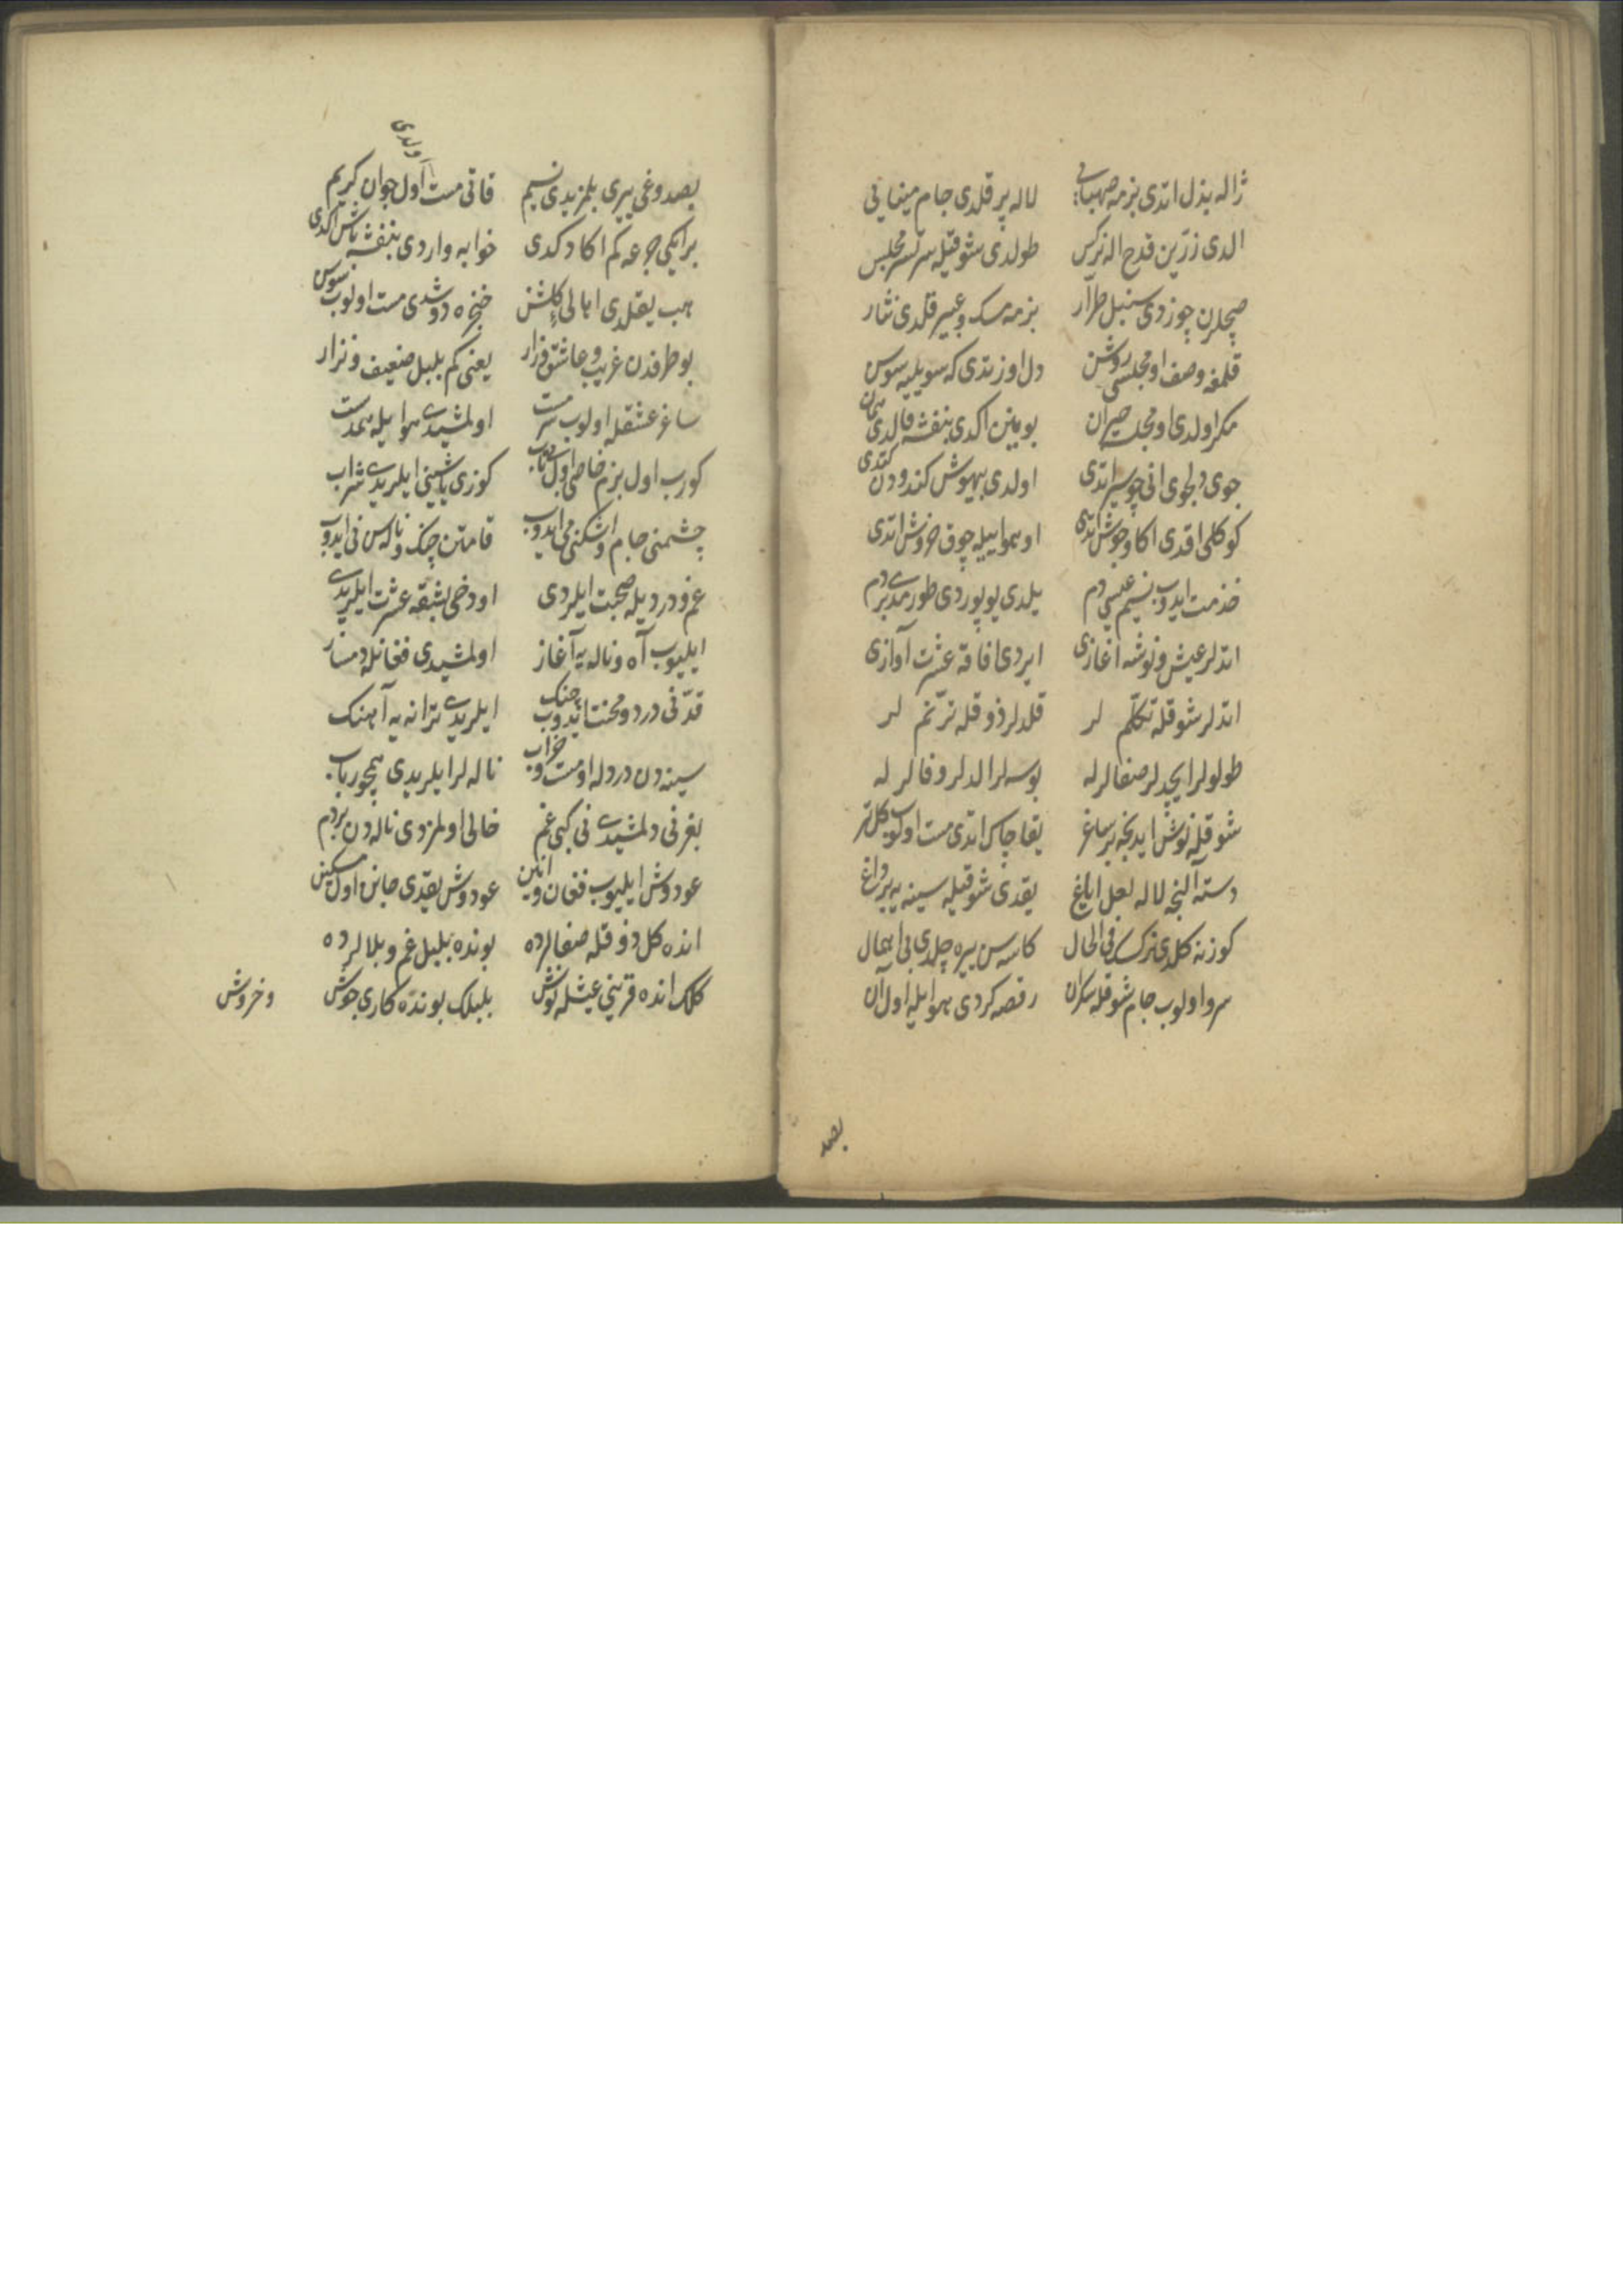 ژاله بذل اتدی بزمه صهبایی لاله پر قلدی جام مینایی
الدی زرین قدح اله نرکس طولدی شوقیله سرتسر مجلس
صچلرن چوزدی سنبل طرار بزمه مسک و عبیر قلدی نثار
قلمغه وصف او مجلسی روشن دل اوزتدی که سویلیه سوسن
مکر اولدی او مجلسه حیران بوینین اکدی بنفشه قالدی همان
جوی دلجوی انی چو سیر اتدی اولدی بیهوش کندودن کتدی
کوکلی اقدی اکا و جوش اتدی او هوا ییله چوق خروش اتدی
خذمت ایدوب نسیم عیسی دم یلدی یوپوردی طورمدی بردم
اتدلر عیش و نوشه آغازی ایردی افاقه عشرت آوازی
اتدلر شوقله تکلم لر قلدلر ذوقله ترنم لر
طولولر ایچدلر صفالر له بوسه لر الدلر وفالر له
شوقله نوش ایدیجه بر ساغر یقا چاک اتدی مست اولوب کل تر
دسته آلنجه لاله لعل ایاغ یقدی شوقیله سینه یه بر داغ
کوزینه کلدی نرکسک فی الحال کاسه سن بیره چلدی بی اهمال
سرو اولوب جام شوقله سکران رقصه کردی هوا ایله اول آن
بصد
بصدوغی ییری بلمزیدی نسیم قاتی مست اولدی اول جوان کریم
بر ایکی جرعه کم اکا دکدی خوابه واردی بنفشه باش اکدی
هب یقلدی اهالیء کلشن خنجره دوشدی مست اولوب سوسن
بو طرفدن غریب و عاشق زار یعنی کم بلبل ضعیف و نزار
ساغر عشقله اولوب سرمست اولمشیدی هوا یله همدست
کورب اول بزم خاصی اول بی تاب کوزی یاشینی ایلریدی شراب
چشمنی جام و اشکنی می ایدوب قامتن چنک و ناله سن نی ایدوب
غم و دردیله صحبت ایلردی او دخی بشقه عشرت ایلریدی
ایلیوب آه و ناله یه آغاز اولمشیدی فغانله دمساز
قدنی درد و محنت ایدوب چنک ایلریدی ترانه یه آهنک
سینه دن دردله او مست و خراب ناله لر ایلریدی همچو رباب
بغرنی دلمشیدی نی کبی غم خالی اولمزدی ناله دن بر دم
عودوش ایلیوب فغان و انین عودوش یقدی جانن اول مسکین
انده کل ذوقله صفالرده بونده بلبل غم و بلالرده
کلک انده قرینی عیشله نوش بلبلک بونده کاری جوش و خروش